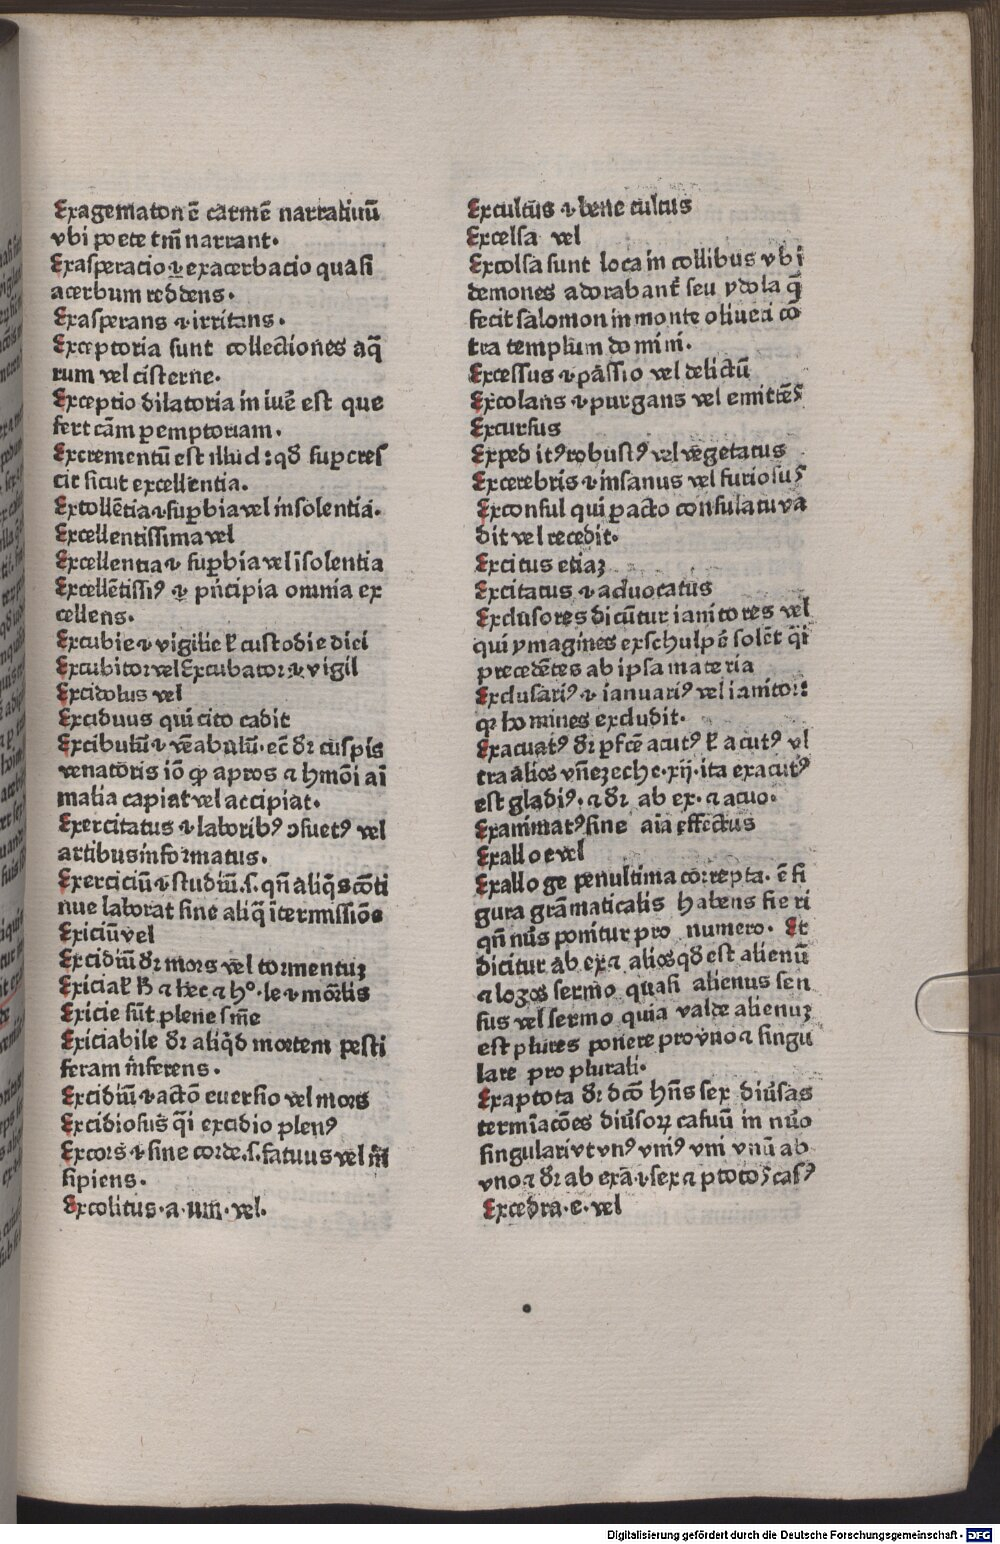 Exagematon ē carmē narratiuū
vbi poete tm̄ narrant.
Exasperacio .i. exacerbacio quasi
acerbum reddens.
Exasperans .i. irritans.
Exceptoria sunt collectiones aq̄
rum vel cisterne.
Exceptio dilatoria in iuē est que
fert cām ꝑemptoriam.
Excrementū est illud: qđ suꝑcres
cit sicut excellentia.
Extollētia .i. suꝑbia vel insolentia.
Excellentissima vel
Excellentia .i. suꝑbia vel īsolentia
Excellētissiꝰ .i. pn̄cipia omnia ex
cellens.
Excubie .i. vigilie ł custodie dici
Excubitor vel Excubator .i. vigil
Excidolus vel
Exciduus qui cito cadit
Excibulū .i. vēabulū. ec̄ dr̄ cuspis
venatoris iō ꝙ apros ⁊ hmōi ai
malia capiat vel accipiat.
Exercitatus .i. laboribꝰ ↄsuetꝰ vel
artibus informatus.
Exerciciū .i. studiū.s. qn̄ aliq̄s cōti
nue laborat sine aliq̄ ītermissiōe
Exiciū vel
Excidiū dr̄ mors vel tormentuꝫ
Exiciał h̄ ⁊ hec ⁊ hº. le .i. mōrlis
Exicie sūt plene sm̄e
Exiciabile dr̄ aliqd̄ mortem pesti
feram īnferens.
Excidiū .i. actō euersio vel mors
Excidiosus q̄i excidio plenꝰ
Excors .i. sine corde.s. fatuus vel īn
sipiens.
Excolitus.a.um. vel.
Excultus .i. bene cultus
Excelsa vel
Excolsa sunt loca in collibus vbi
demones adorabant̄ seu ydola q̄
fecit salomon in monte oliueti cō
tra templum domini.
Excessus .i. passio vel delictū
Excolans .i. purgans vel emittēs
Excursus
Expeditꝰ robustꝰ vel vegetatus
Excerebris .i. insanus vel furiosus
Exconsul qui ꝑacto consulatu va
dit vel recedit.
Excitus etiaꝫ
Excitatus .i. aduocatus
Exclusores dicūtur ianitores vel
qui ymagines exschulpē solēt q̄i
precedētes ab ipsa materia
Exclusariꝰ .i. ianuariꝰ vel ianitor:
qꝛ homines excludit.
Exacuatꝰ dr̄ ꝑfcē acutꝰ ł acutꝰ vl
tra alios vn̄ ezeche.xij. ita exacutꝰ
est gladiꝰ. ⁊ dr̄ ab ex. ⁊ acuo.
Exanimatꝰ sine aīa effectus
Exalloe vel
Exalloge penultima correpta. ē fi
gura grāmaticalis habens fieri
qn̄ nūs ponitur pro numero. Et
dicitur ab ex ⁊ alios qđ est alienū
⁊ logos sermo quasi alienus sen
sus vel sermo quia valde alienuꝫ
est plures ponere pro vno ⁊ singu
lare pro plurali.
Exaptota dr̄ dcō hn̄s sex diūsas
termīacōes diūsoꝝ casuū in nūo
singulari vt vnꝰ vniꝰ vni vnū ab
vno ⁊ dr̄ ab exa .i. sex ⁊ ptotos casꝰ
Excedra.e. vel
Digitalisierung gefördert durch die Deutsche Forschungsgemeinschaft - DFG